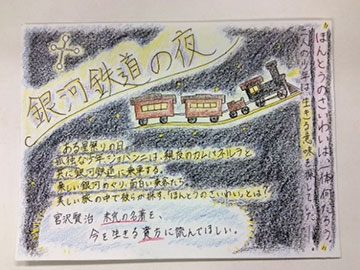 ほんとうのさいわいは一体何だろう
二人の少年は、生きる意味を探しに行った。
銀河鉄道の夜
ある星祭りの日
孤独な少年ジョバンニは、親友のカムパネルラと
共に銀河鉄道に乗車する。
美しい銀河めぐり、面白い乗客たち
美しい旅の中で彼らが探す、「ほんとうのさいわい」とは?
宮沢賢治 未完の名著を、
今を生きる貴方に読んでほしい。